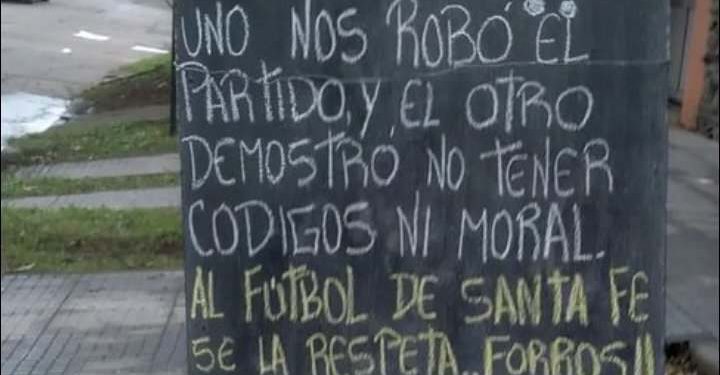 UNO NOS ROBÓ EL
PARTIDO, Y EL OTRO
DEMOSTRÓ NO TENER
CODIGOS NI MORAL.
AL FÚTBOL DE SANTA FE
SE LA RESPETA.. FORROS!!